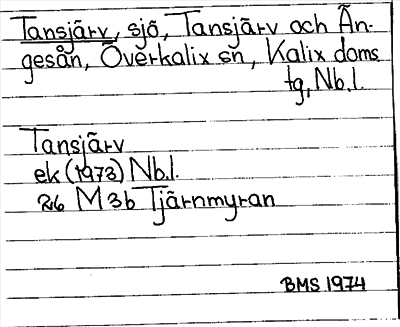 Tansjärv, sjö, Tansjärv och Än-
gesån, Överkalix sn, Kalix doms
tg, Nb.l.
Tansjärv
ek (1973) Nb.l.
26 M 3b Tjärnmyran
BMS 1974